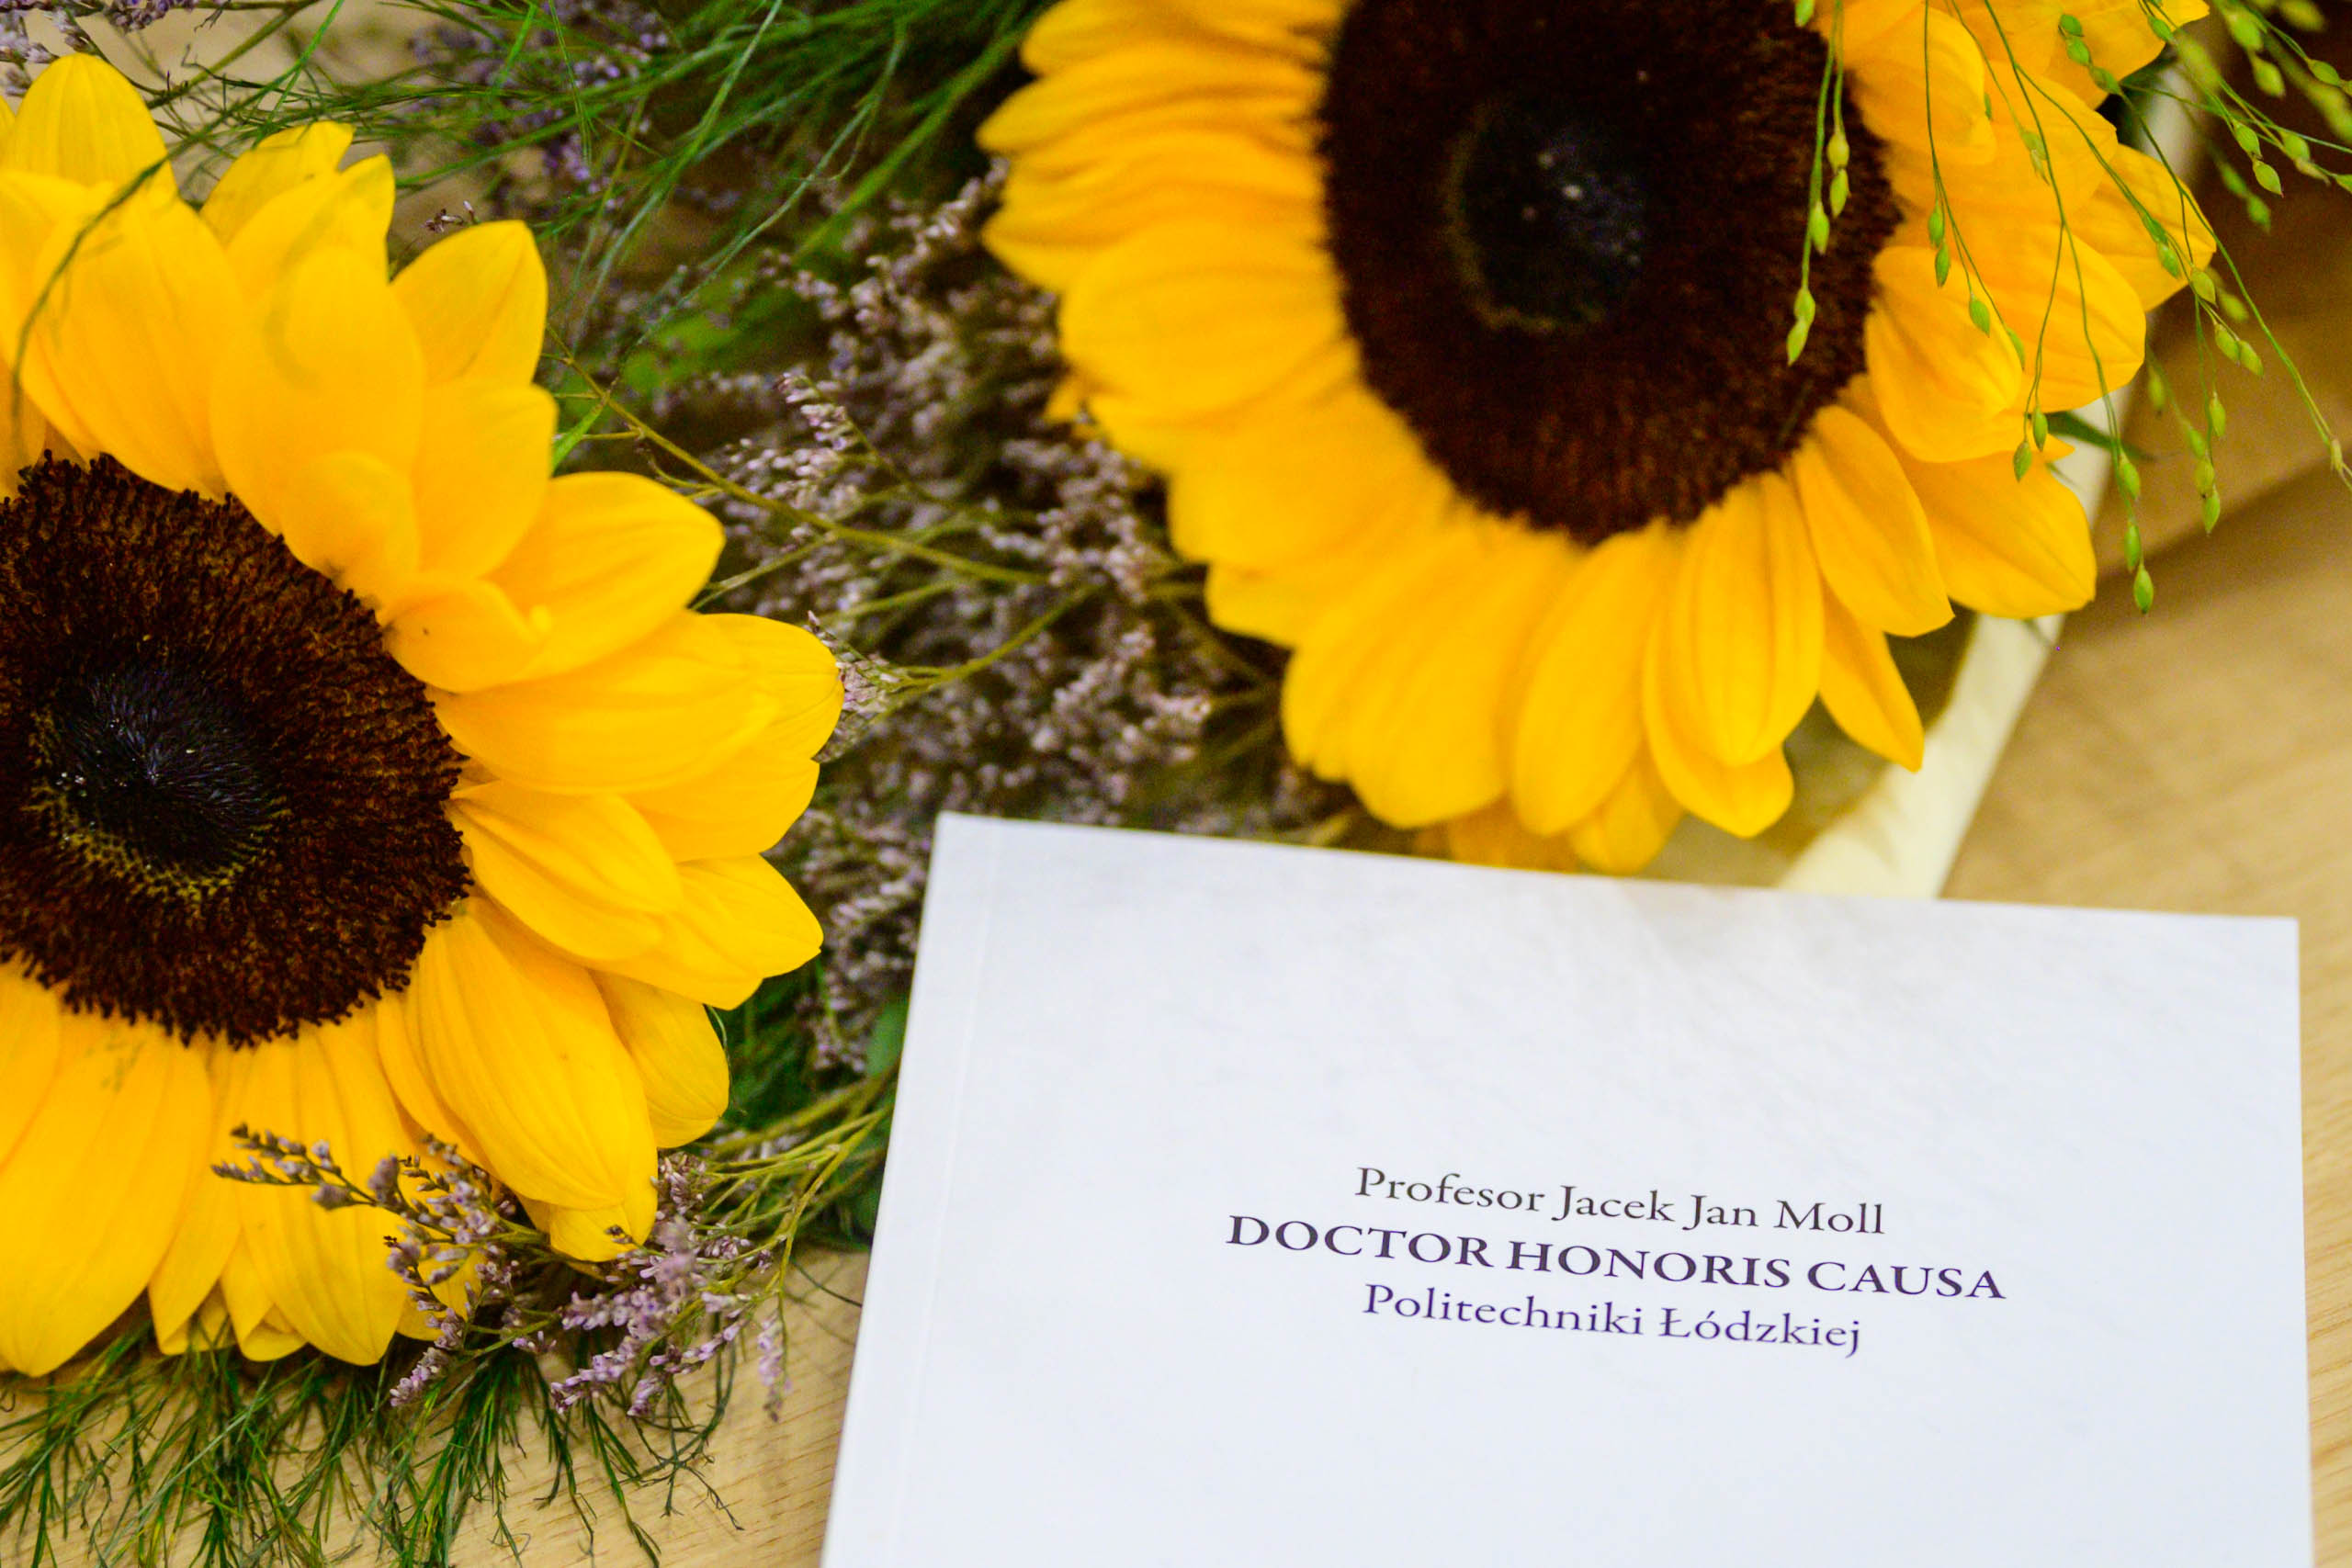 Profesor Jacek Jan Moll
DOCTOR HONORIS CAUSA
Politechniki Łódzkiej